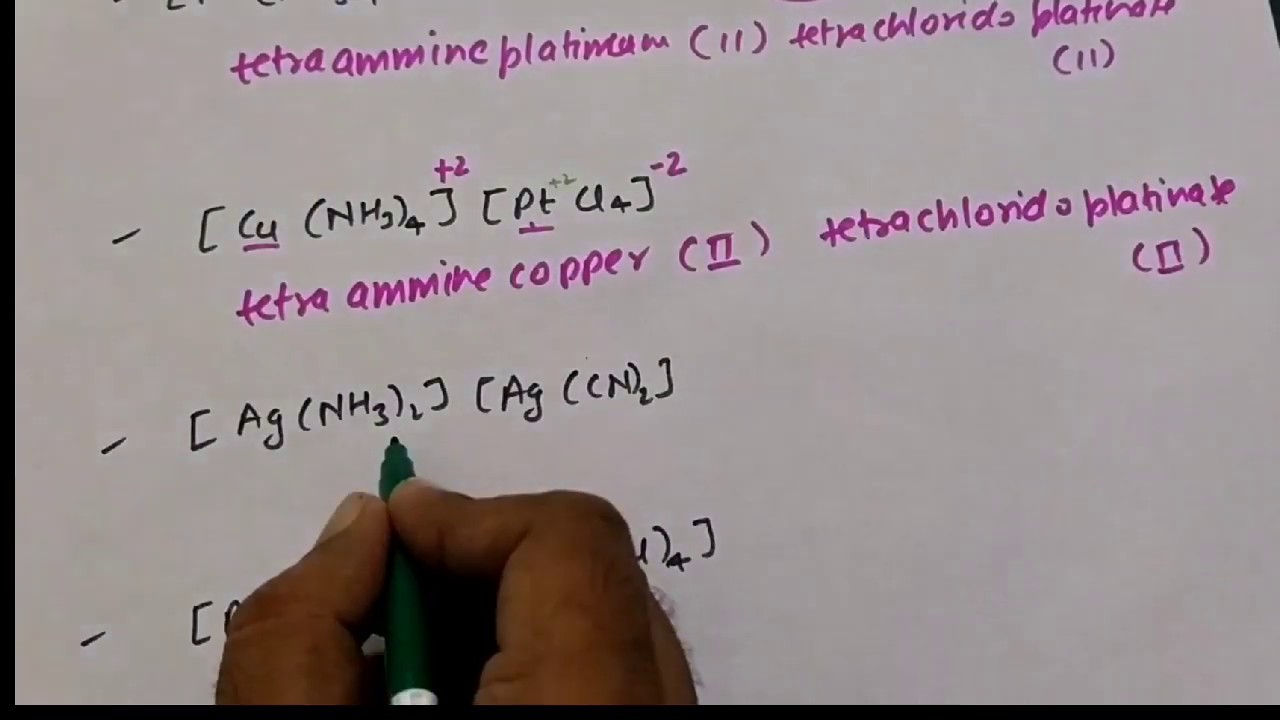 tetraammineplatinum (II) tetrachlorido platinate
(II)
- [Cu (NH3)4]+2 [Pt+2 Cl4]-2
tetra ammine copper (II) tetrachlorido platinate
(II)
- [Ag(NH3)2] [Ag (CN)2]
- [ )4]